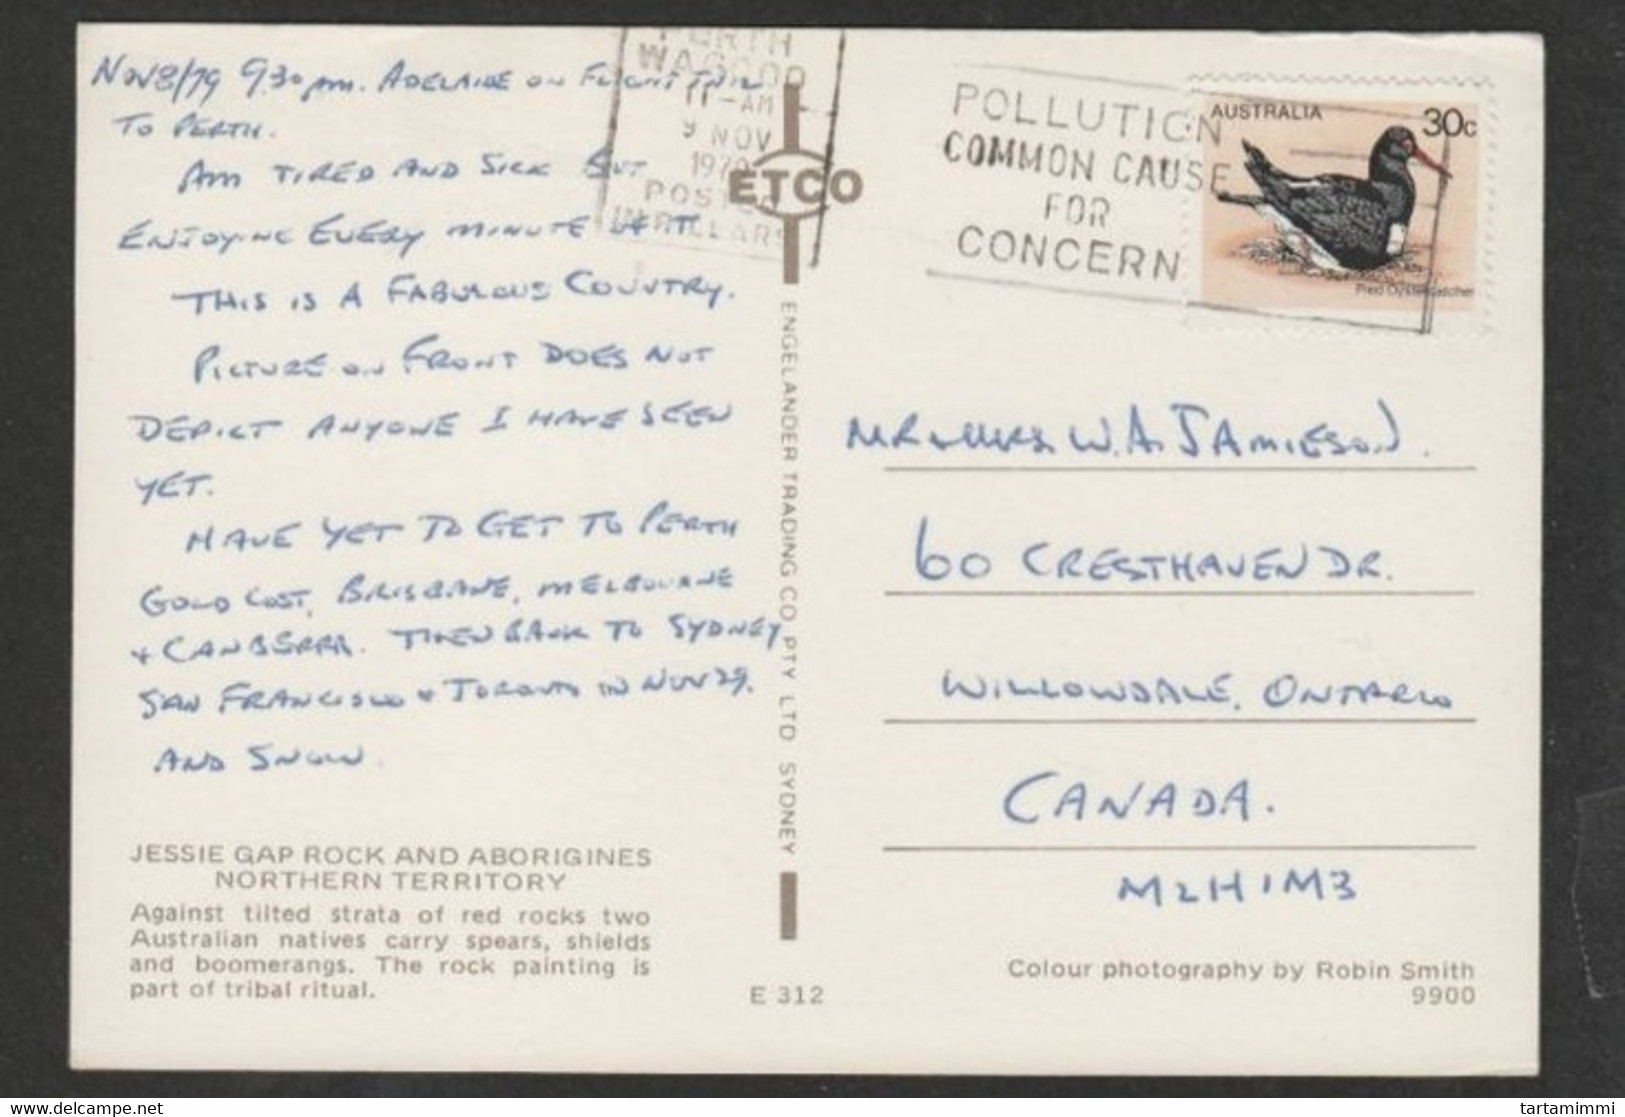 Nov 8/79 930 pm. ADELAIDE ON FLIGHT
TO PERTH.
AM TIRED AND SICK BUT
ENJOYING EVERY MINUTE OF IT.
THIS IS A FABULOUS COUNTRY.
PICTURE ON FRONT DOES NOT
DEPICT ANYONE I HAVE SEEN
YET.
HAVE YET TO GET TO PERTH
GOLD COST, BRISBANE, MELBOURNE
+ CANBERRA. THEN BACK TO SYDNEY
SAN FRANCISCO + TORONTO IN NOV 29.
AND SNOW.
JESSIE GAP ROCK AND ABORIGINES
NORTHERN TERRITORY
Against tilted strata of red rocks two
Australian natives carry spears, shields
and boomerangs. The rock painting is
part of tribal ritual.
PERTH
WA 6000
11-AM
9 NOV
1979
POSTED
IN PILLARS
ETCO
ENGELANDER TRADING CO PTY LTD SYDNEY
E 312
POLLUTION
COMMON CAUSE
FOR
CONCERN
AUSTRALIA 30c
Pied Oystercatcher
MR & MRS W.A. JAMIESON.
60 CRESTHAVEN DR.
WILLOWDALE, ONTARIO
CANADA.
M2H1M3
Colour photography by Robin Smith
9900
delcampe.net
tartamimmi